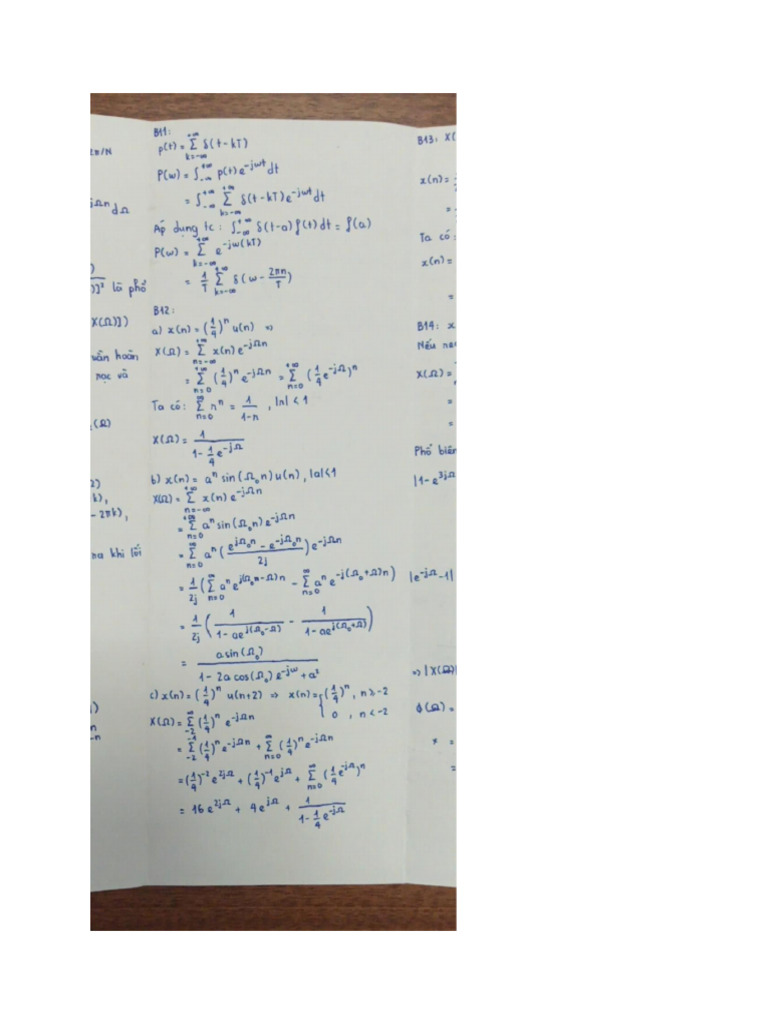 2π/N
jΩn dΩ
)]² là phổ
X(Ω)])
uần hoàn
nạc và
(Ω)
2)
k),
- 2πk),
na khi lõi
B11:
p(t) = Σ_{k=-∞}^{+∞} δ(t - kT)
P(w) = ∫_{-∞}^{+∞} p(t) e^{-jwt} dt
= ∫_{-∞}^{+∞} Σ_{k=-∞}^{+∞} δ(t - kT) e^{-jwt} dt
Áp dụng tc: ∫_{-∞}^{+∞} δ(t-a) f(t) dt = f(a)
P(w) = Σ_{k=-∞}^{+∞} e^{-jw(kT)}
= 1/T Σ_{k=-∞}^{+∞} δ(w - 2πn/T)
B12:
a) x(n) = (1/4)^n u(n) ⇒
X(Ω) = Σ_{n=-∞}^{+∞} x(n) e^{-jΩn}
= Σ_{n=0}^{+∞} (1/4)^n e^{-jΩn} = Σ_{n=0}^{+∞} (1/4 e^{-jΩ})^n
Ta có: Σ_{n=0}^{∞} n^n = 1/(1-n), |n| < 1
X(Ω) = 1/(1 - 1/4 e^{-jΩ})
b) x(n) = a^n sin(Ω₀n) u(n), |a|<1
X(Ω) = Σ_{n=-∞}^{∞} x(n) e^{-jΩn}
= Σ_{n=0}^{+∞} a^n sin(Ω₀n) e^{-jΩn}
= Σ_{n=0}^{∞} a^n ((e^{jΩ₀n} - e^{-jΩ₀n})/2j) e^{-jΩn}
= 1/2j (Σ_{n=0}^{∞} a^n e^{j(Ω₀n-Ω)n} - Σ_{n=0}^{∞} a^n e^{-j(Ω₀+Ω)n})
= 1/2j (1/(1 - ae^{j(Ω₀-Ω)}) - 1/(1 - ae^{j(Ω₀+Ω)}))
= a sin(Ω₀)/(1 - 2a cos(Ω₀) e^{-jω} + a²)
c) x(n) = (1/4)^n u(n+2) ⇒ x(n) = { (1/4)^n, n ≥ -2
0, n < -2
X(Ω) = Σ_{-2}^{∞} (1/4)^n e^{-jΩn}
= Σ_{-2}^{-1} (1/4)^n e^{-jΩn} + Σ_{n=0}^{∞} (1/4)^n e^{-jΩn}
= (1/4)^{-2} e^{2jΩ} + (1/4)^{-1} e^{jΩ} + Σ_{n=0}^{∞} (1/4 e^{-jΩ})^n
= 16e^{2jΩ} + 4e^{jΩ} + 1/(1 - 1/4 e^{-jΩ})
B13: X(
x(n) =
=
Ta có:
x(n) =
=
B14: x
Nếu
X(Ω) =
=
=
Phổ biên
|1-e^{3jΩ}
|e^{-jΩ}-1|
⇒ |X(Ω)|
φ(Ω) =
* =
=